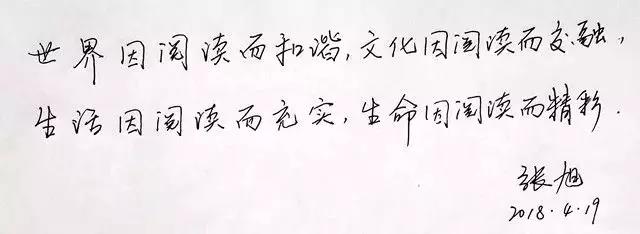 世界因阅读而和谐,文化因阅读而交融,
生活因阅读而充实,生命因阅读而精彩.
张旭
2018.4.19